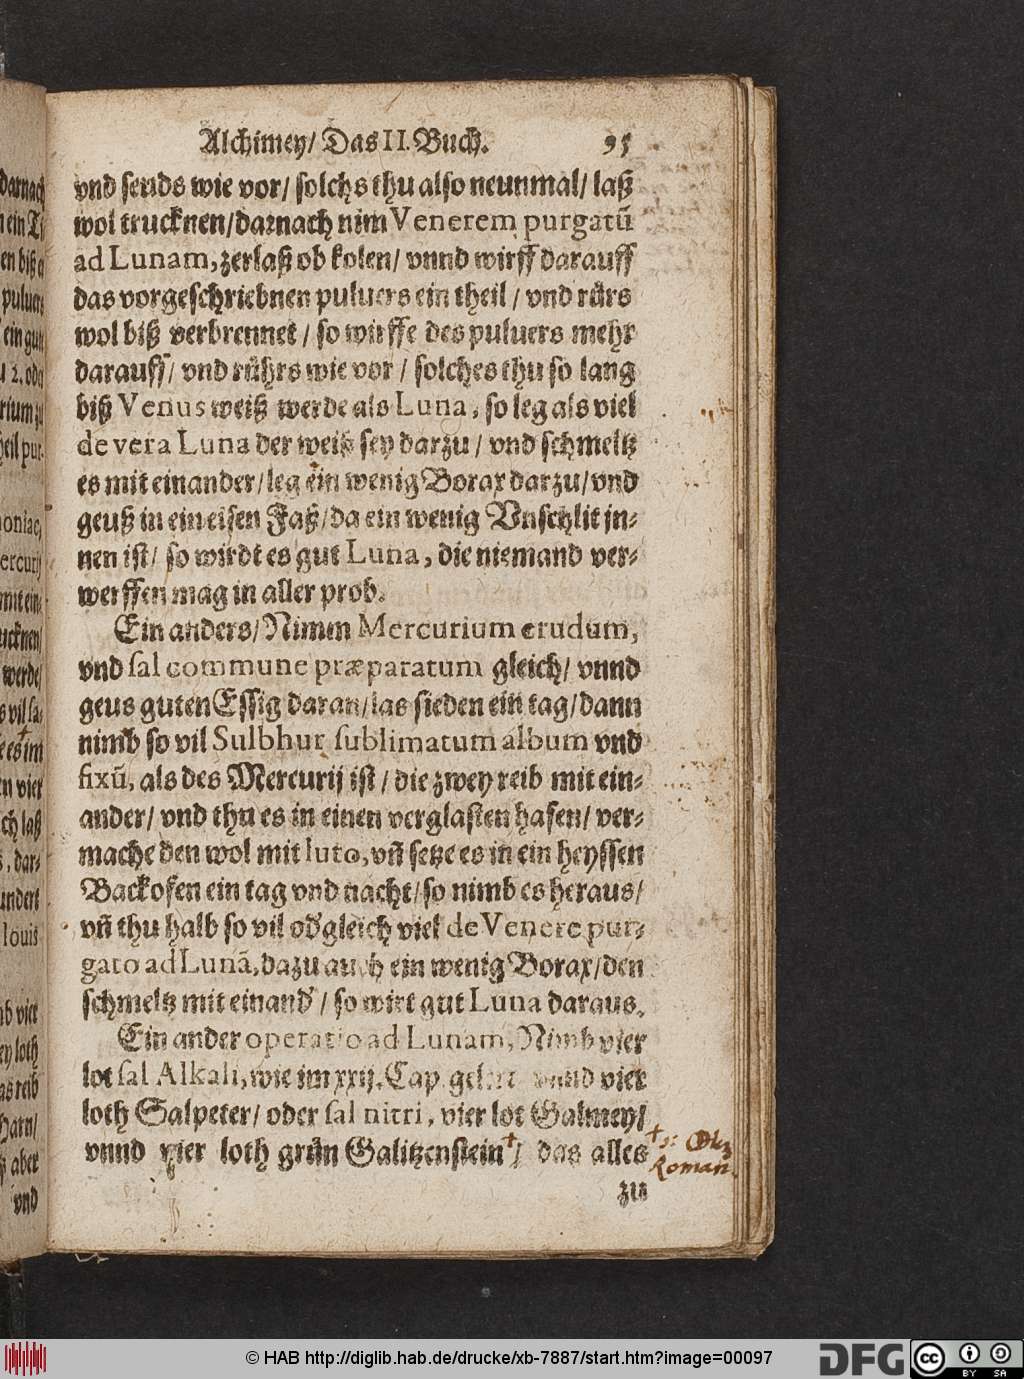 Alchimey/ Das II. Buch. 95
vnd sends wie vor/ solchs thu also neunmal/ laß
wol trucknen/darnach nim Venerem purgatū
ad Lunam, zerlaß ob kolen/ vnnd wirff darauff
das vorgeschriebnen puluers ein theil / vnd rürs
wol biß verbrennet / so wirffe des puluers mehr
darauff/ vnd rührs wie vor / solches thu so lang
biß Venus weiß werde als Luna, so leg als viel
de vera Luna der weiß sey darzu / vnd schmeltz
es mit einander/ leg ein wenig Borax darzu/ vnd
geuß in ein eisen Faß/ da ein wenig Vnschlit in-
nen ist/ so wirdt es gut Luna, die niemand ver-
werffen mag in aller prob.
Ein anders/ Nimm Mercurium crudum,
vnd sal commune præparatum gleich/ vnnd
geus guten Essig daran/las sieden ein tag/dann
nimb so vil Sulphur sublimatum album vnd
fixū, als des Mercurij ist / die zwey reib mit ein-
ander/ vnd thu es in einen verglasten hafen/ ver-
mache den wol mit luto, vñ setze es in ein heyssen
Backofen ein tag vnd nacht/so nimb es heraus/
vñ thu halb so vil od' gleich viel de Venere pur-
gato ad Lunā, dazu auch ein wenig Borax/den
schmeltz mit einand' / so wirt gut Luna daraus.
Ein ander operatio ad Lunam, Nimb vier
lot sal Alkali, wie im xxij. Cap. gelert vnnd vier
loth Salpeter/ oder sal nitri, vier lot Galmey/
vnnd vier loth grün Galitzenstein+/ das alles
+ s: Ol
Roman.
zu
darnach
en biß
puluers
ein gut
2. oder
theil pur-
moniac,
Mercurij
mit ein-
trucknen/
werde/
es im
en vier
ch laß
, dar-
hundert
louis
mb vier
ey loth
as reib
Harn/
aber
vnd
© HAB http://diglib.hab.de/drucke/xb-7887/start.htm?image=00097
DFG
cc
BY SA